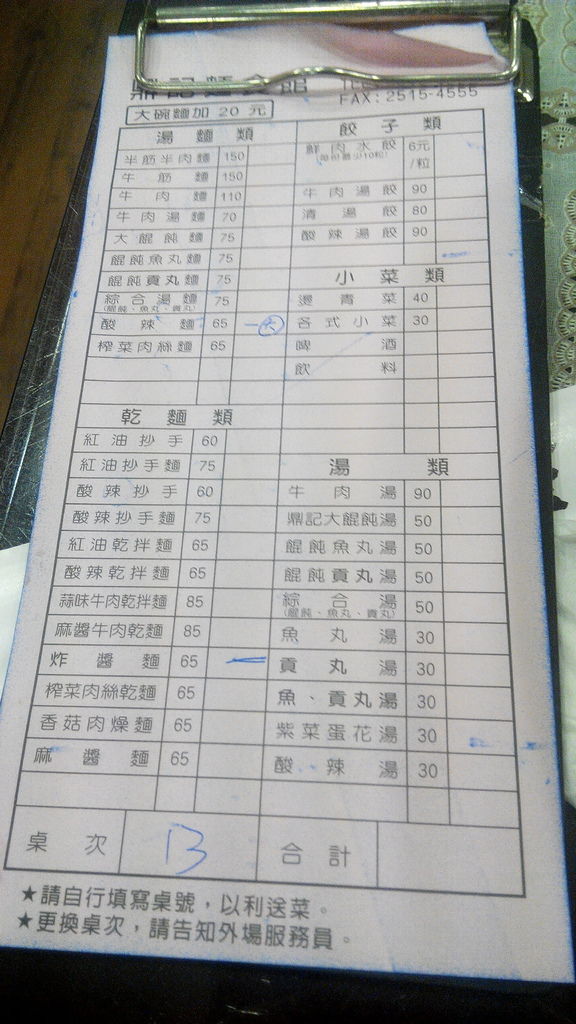 鼎記麵食館
FAX: 2515-4555
大碗麵加 20 元
湯麵類
半筋半肉麵 150
牛筋麵 150
牛肉麵 110
牛肉湯麵 70
大餛飩麵 75
餛飩魚丸麵 75
餛飩貢丸麵 75
綜合湯麵 75
(餛飩、魚丸、貢丸)
酸辣麵 65 一大
榨菜肉絲麵 65
乾麵類
紅油抄手 60
紅油抄手麵 75
酸辣抄手 60
酸辣抄手麵 75
紅油乾拌麵 65
酸辣乾拌麵 65
蒜味牛肉乾拌麵 85
麻醬牛肉乾麵 85
炸醬麵 65 一
榨菜肉絲乾麵 65
香菇肉燥麵 65
麻醬麵 65
餃子類
鮮肉水餃 6元/粒
牛肉湯餃 90
清湯餃 80
酸辣湯餃 90
小菜類
燙青菜 40
各式小菜 30
啤酒
飲料
湯類
牛肉湯 90
鼎記大餛飩湯 50
餛飩魚丸湯 50
餛飩貢丸湯 50
綜合湯 50
(餛飩、魚丸、貢丸)
魚丸湯 30
貢丸湯 30
魚、貢丸湯 30
紫菜蛋花湯 30
酸辣湯 30
桌次 13 合計
★請自行填寫桌號，以利送菜。
★更換桌次，請告知外場服務員。